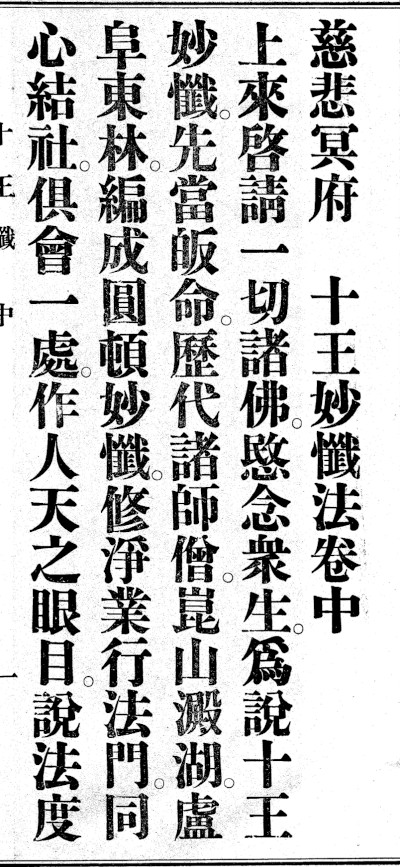 慈悲冥府　十王妙懺法卷中
上來啓請一切諸佛。愍念衆生。爲說十王
妙懺。先當皈命。歷代諸師僧。崑山澱湖。盧
阜東林。編成圓頓妙懺。修淨業行法門。同
心結社。俱會一處。作人天之眼目。說法度
十王懺中　一